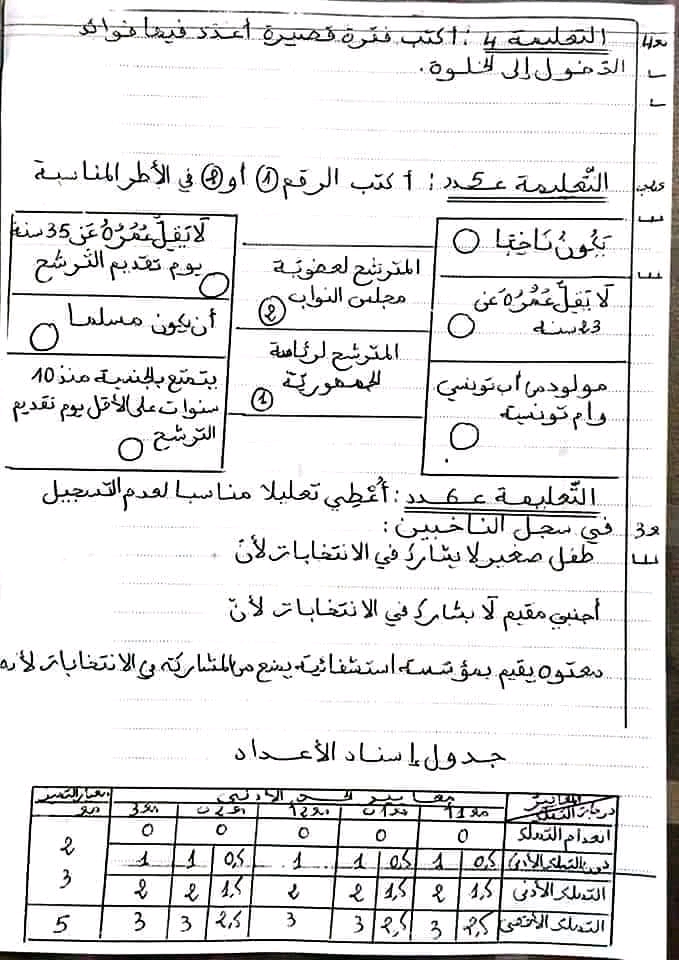 التعليمة 4 : اكتب فقرة قصيرة أعدد فيها فوائد
مع4
الدخول إلى الخلوة.
التّعليمة عـ5ـدد : اكتب الرقم 1 أو 2 في الأطر المناسبة
يَكُونُ نَاخِبًا
لَا يَقِلُّ عُمُرُهُ عَن
23 سنة
مولود من أب تونسي
وأم تونسية
المترشح لعضوية
مجلس النواب
2
المترشح لرئاسة
الجمهوريّة
1
لَا يَقِلُّ عُمُرُهُ عَن 35 سنة
يوم تقديم التّرشح
أن يكون مسلما
يتمتع بالجنسية منذ 10
سنوات على الأقل يوم تقديم
الترشح
التّعليمة عـ6ـدد : أُعْطِي تعليلا مناسبا لعدم التسجيل
في سجل الناخبين :
مع3
طفل صغير لا يشارك في الانتخابات لأنّ
أجنبي مقيم لا يشارك في الانتخابات لأنّ
معتوه يقيم بمؤسسة استشفائية يمنع من المشاركة في الانتخابات لأنه
جدول إسناد الأعداد
المعايير
درجات التملك
معايير الحد الأدنى
معيار التميز
مع1أ مع1ب مع2أ مع2ب مع3 مع4
انعدام التملك 0 0 0 0 0
دون التملك الأدنى 0,5 1 0,5 1 1 0,5 1 1 2
التملك الأدنى 1,5 2 1,5 2 2 1,5 2 2 3
التملك الأقصى 2,5 3 2,5 3 3 2,5 3 3 5